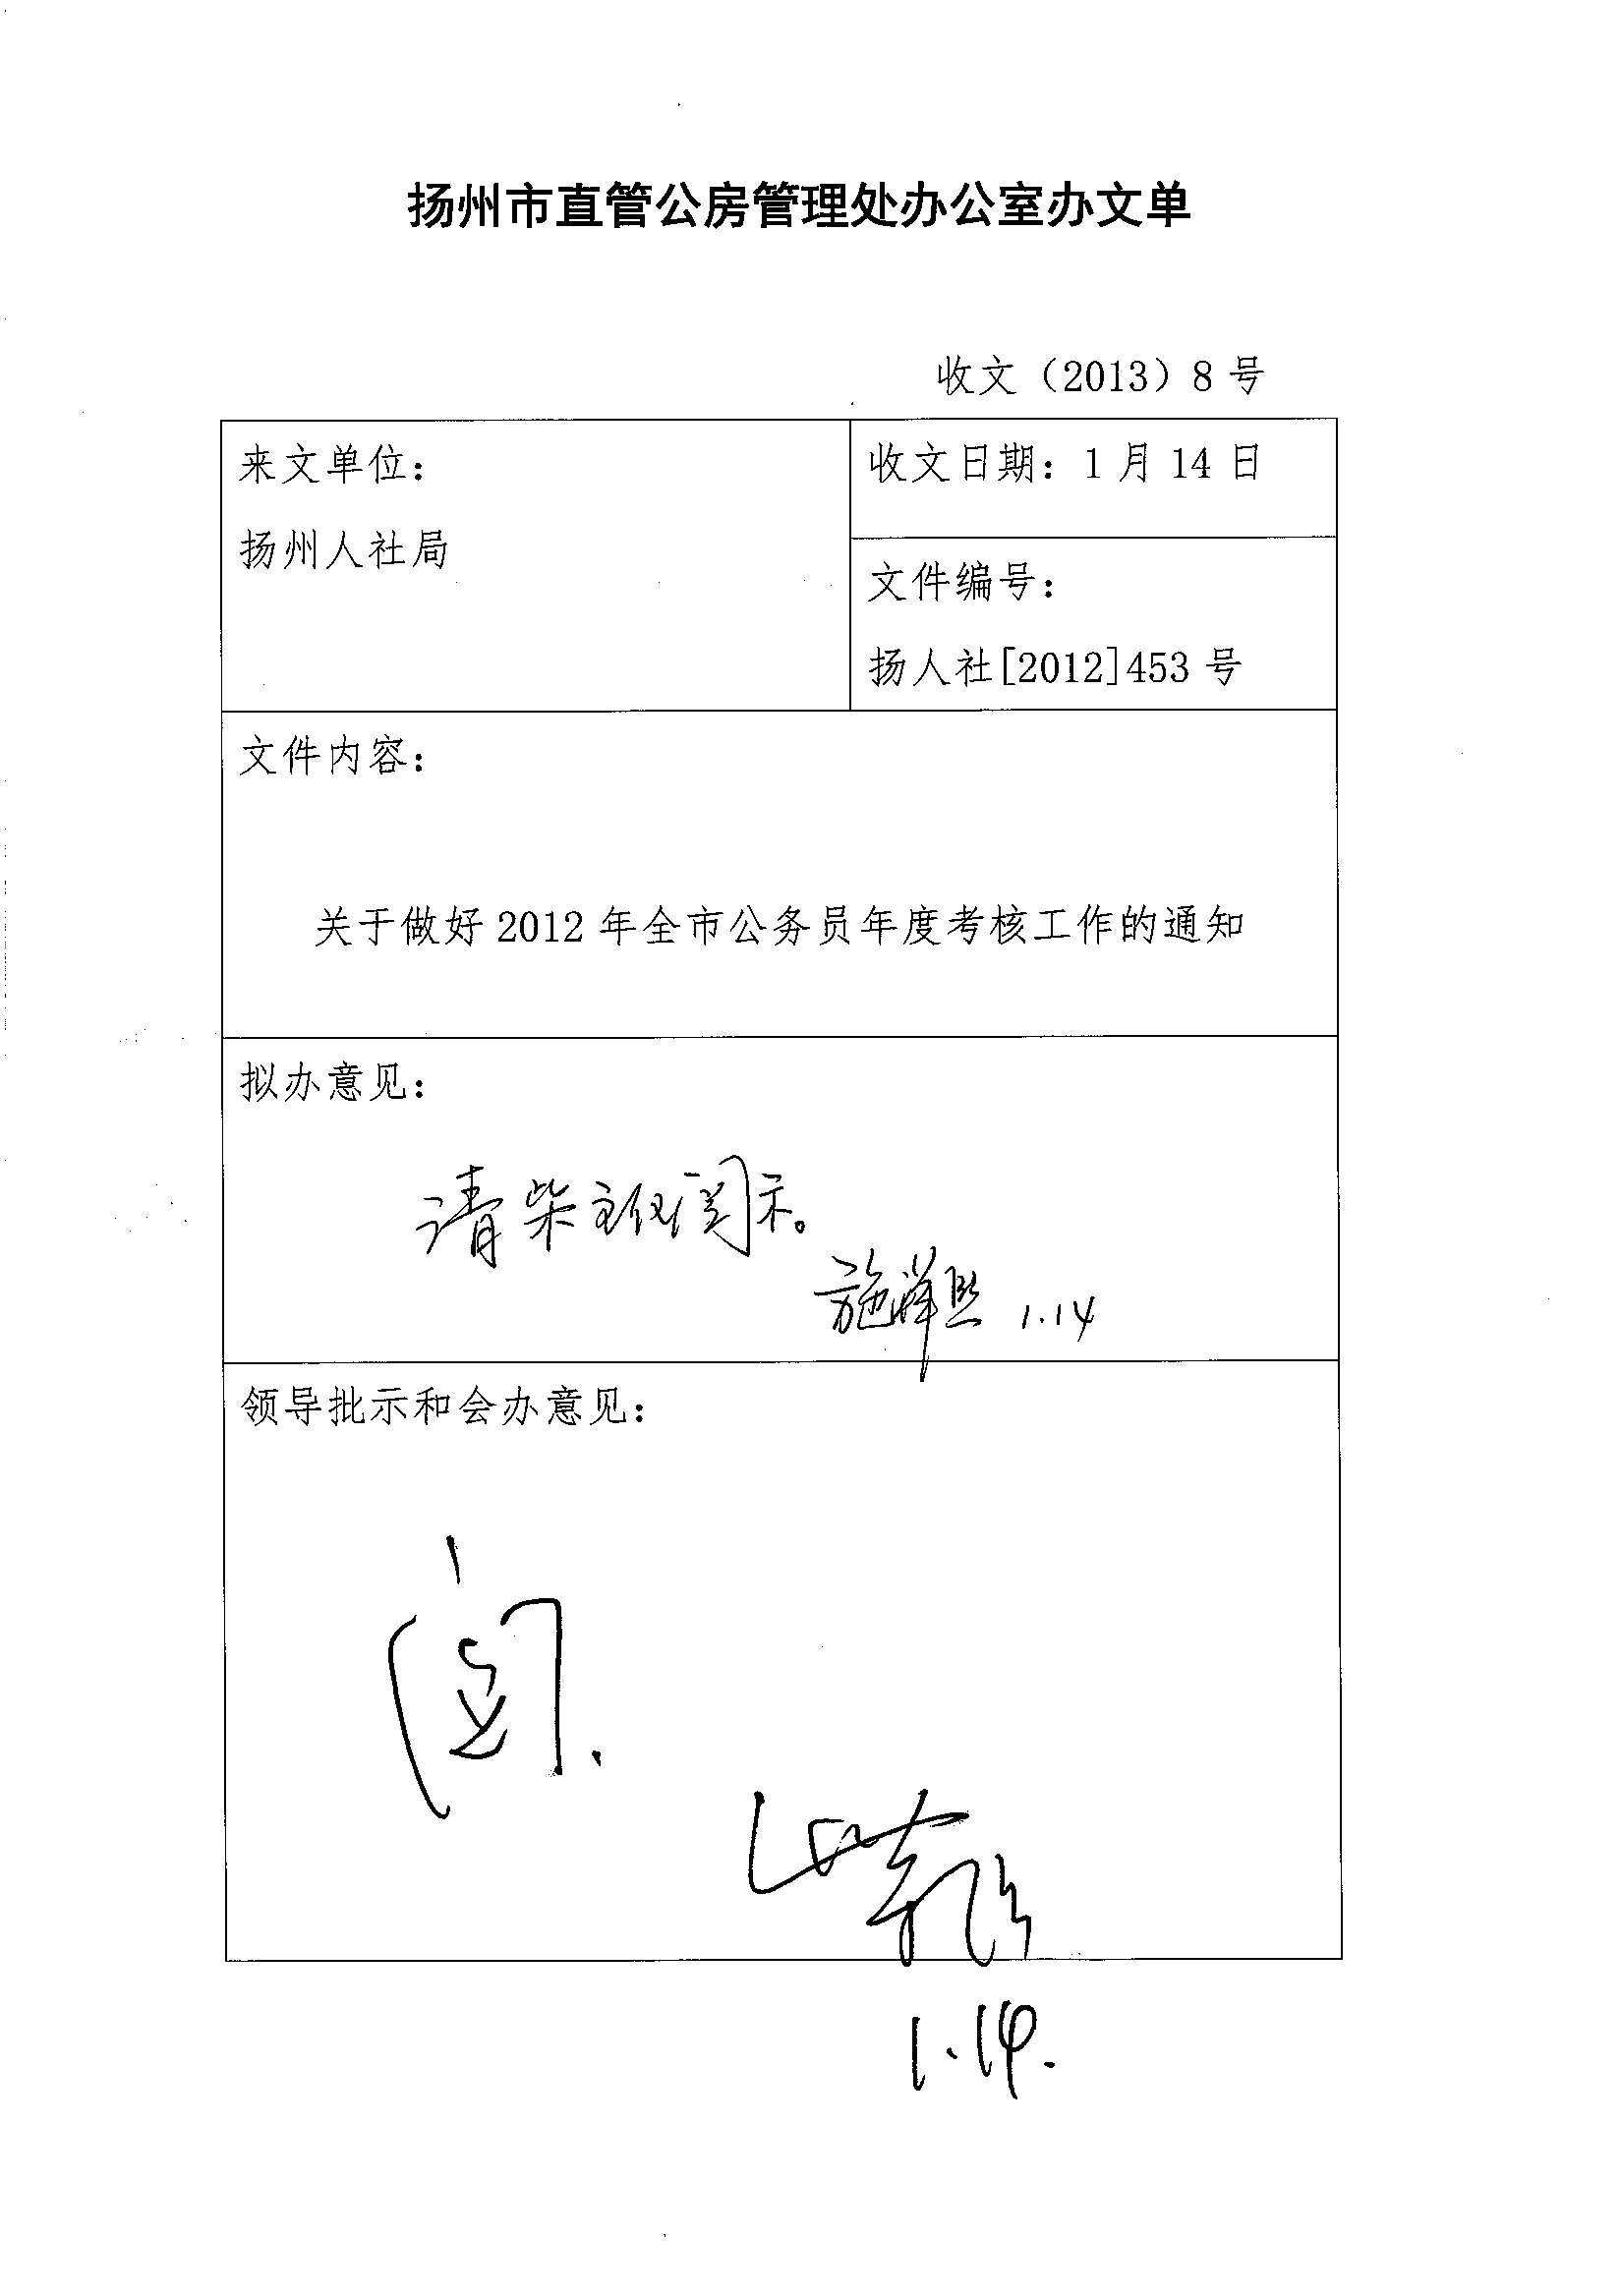 扬州市直管公房管理处办公室办文单
收文（2013）8 号
来文单位：
扬州人社局
收文日期：1 月 14 日
文件编号：
扬人社[2012]453 号
文件内容：
关于做好 2012 年全市公务员年度考核工作的通知
拟办意见：
请柴主任阅示。
施 1.14
领导批示和会办意见：
阅.
1.14.